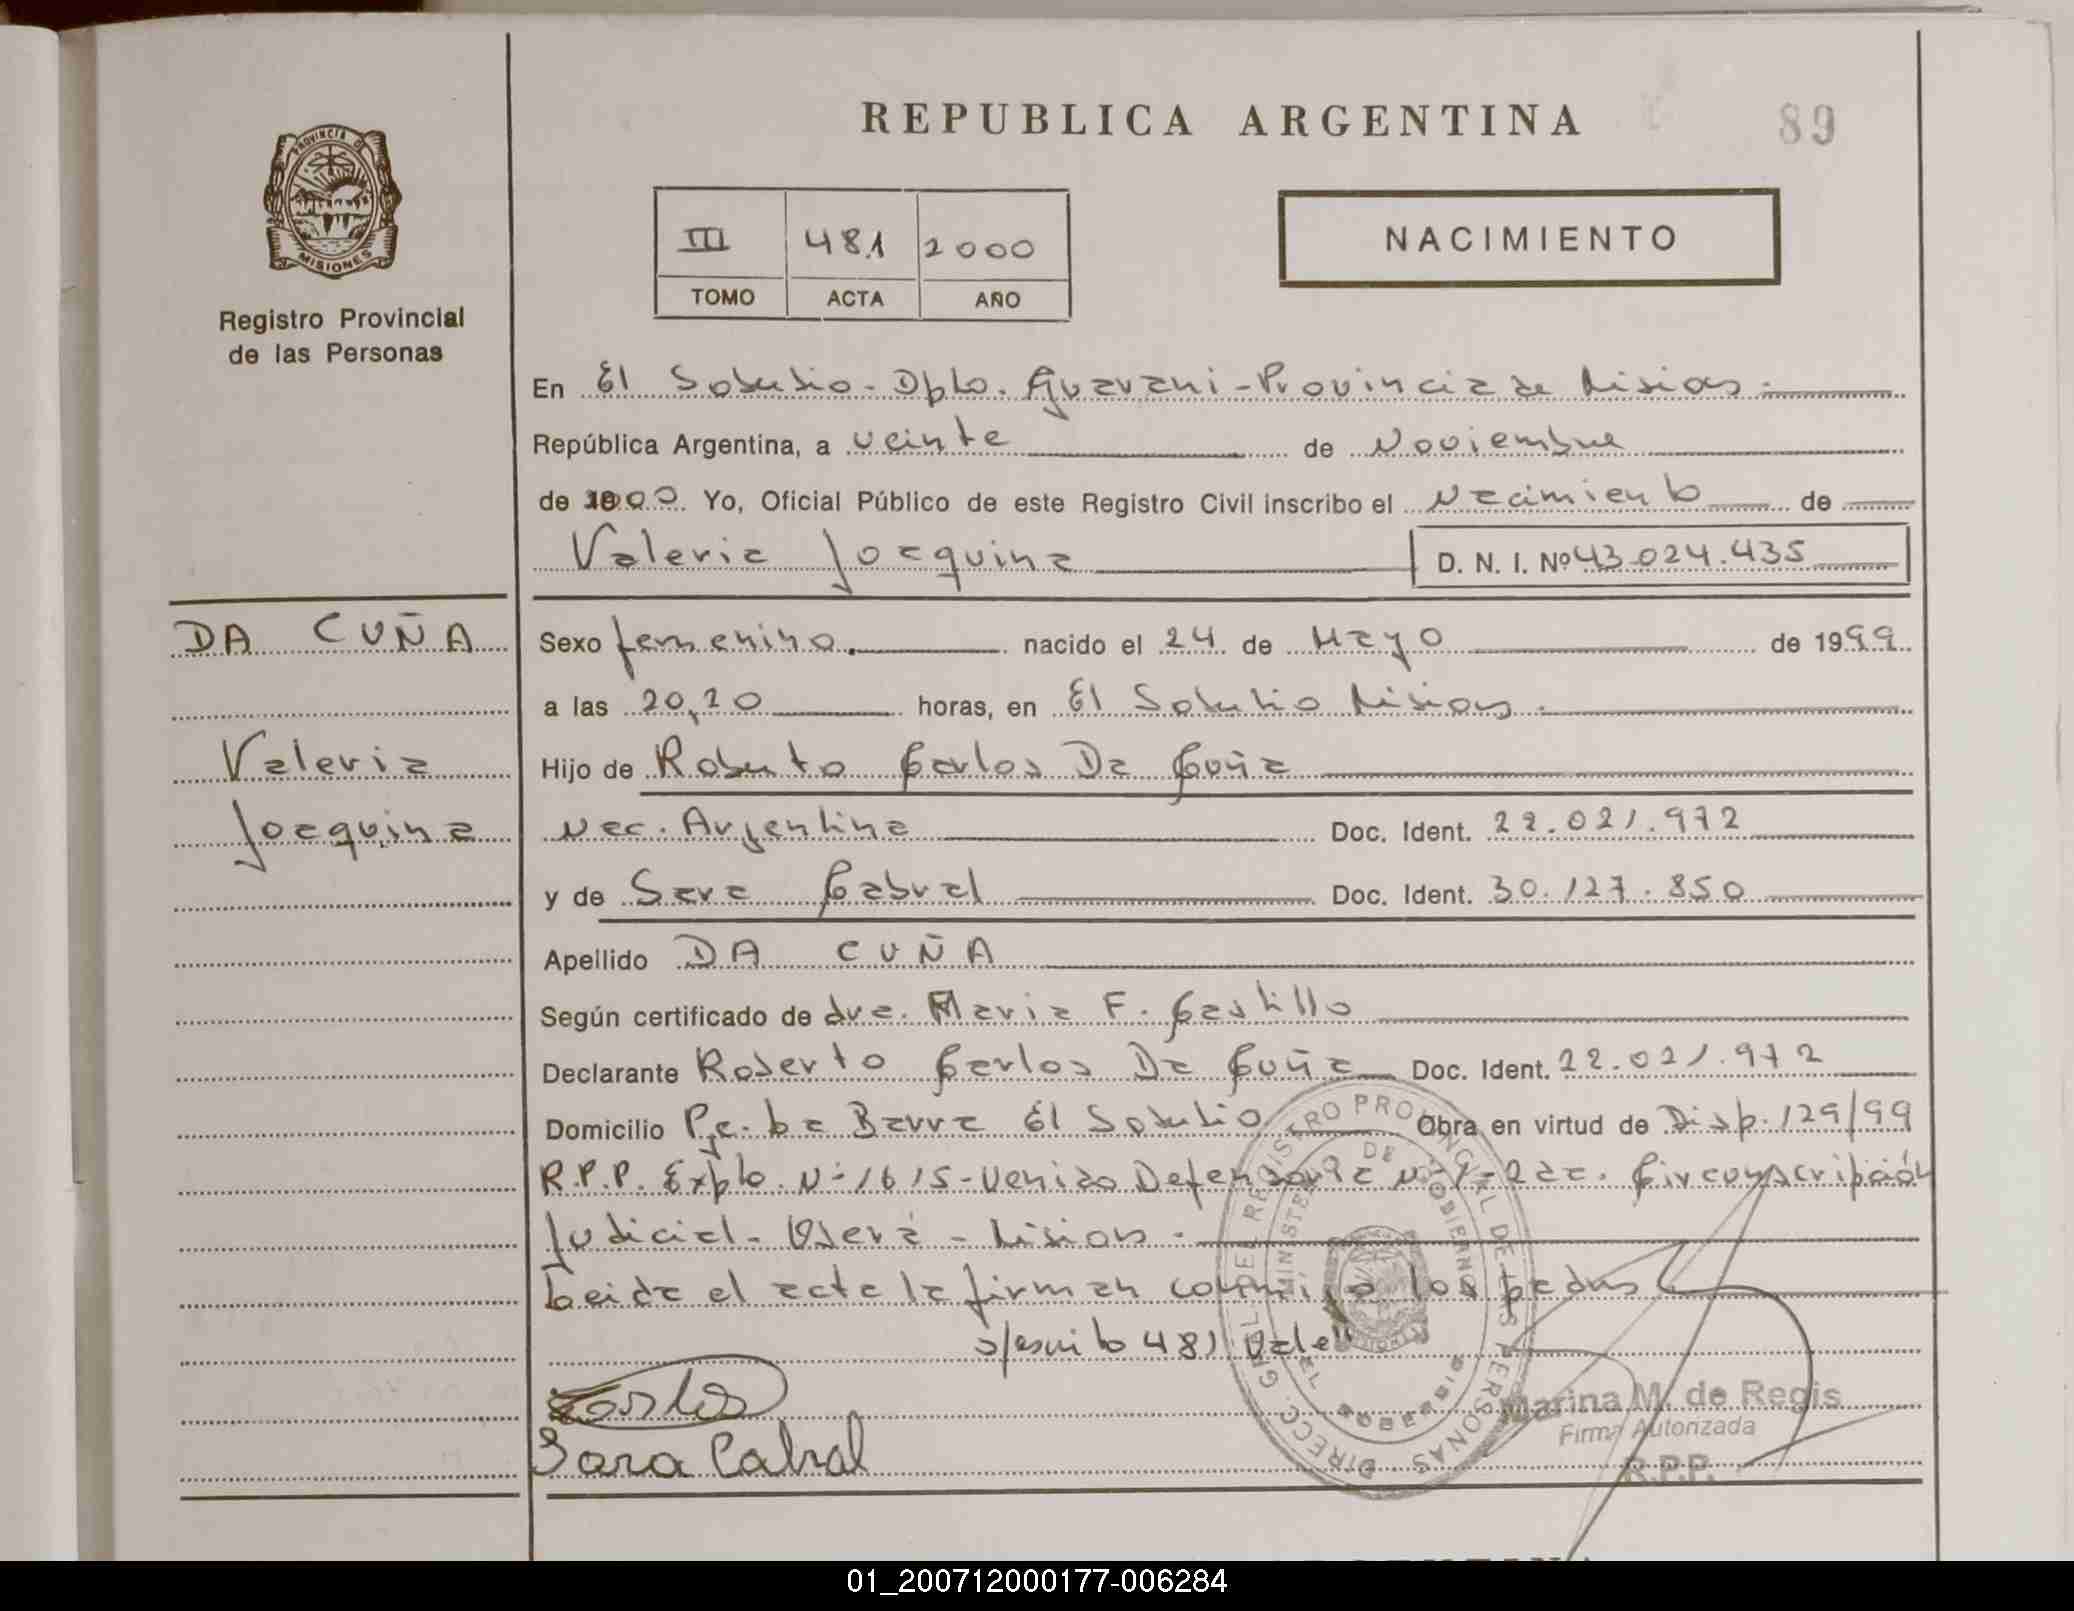 REPUBLICA ARGENTINA
89
PROVINCIA DE
MISIONES
Registro Provincial
de las Personas
III 481 2000
TOMO ACTA AÑO
NACIMIENTO
En El Soberbio - Dpto. Guarani - Provincia de Misiones.
República Argentina, a veinte de Noviembre
de 2000. Yo, Oficial Público de este Registro Civil inscribo el Nacimiento de
Valeria Joaquina D. N. I. Nº 43.024.435
DA CUÑA
Valeria
Joaquina
Sexo femenino. nacido el 24 de Mayo de 1999
a las 20,20 horas, en El Soberbio Misiones.
Hijo de Roberto Carlos Da Cuña
Nac. Argentina Doc. Ident. 22.021.972
y de Sara Cabral Doc. Ident. 30.127.850
Apellido DA CUÑA
Según certificado de dra. Maria F. Castillo
Declarante Roberto Carlos Da Cuña Doc. Ident. 22.021.972
Domicilio Pje. La Barra El Soberbio Obra en virtud de Disp. 129/99
R.P.P. Expte. Nº 1615 - Venido Defensoria Nº 1 - 2da. Circunscripción
Judicial - Oberá - Misiones.
Leida el acta la firman conmigo los padres
s/escrito 481 Vale"
Carlos
Sara Cabral
DIRECC. GRAL. DEL REGISTRO PROVINCIAL DE LAS PERSONAS
MINISTERIO DE GOBIERNO
EL SOBERBIO
Marina M. de Regis
Firma Autorizada
R.P.P.
01_200712000177-006284